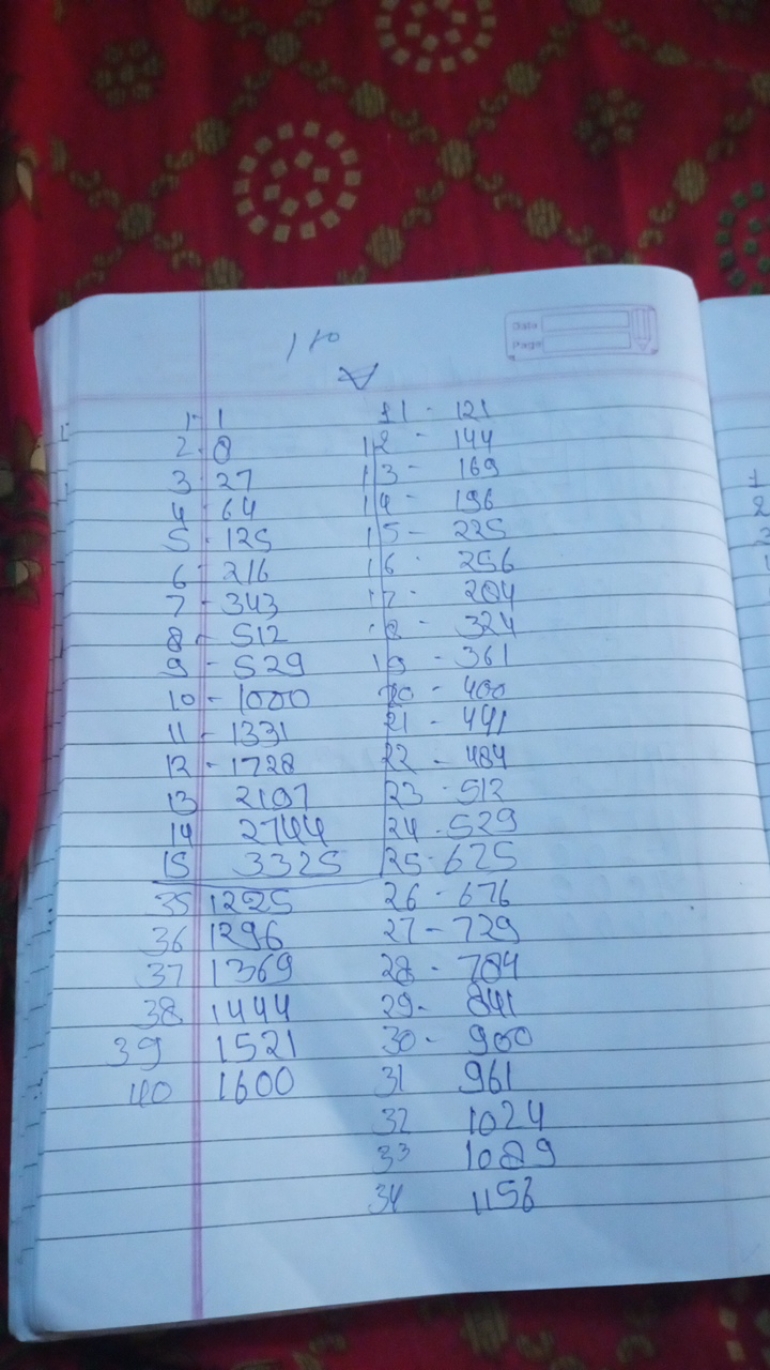 110
Date
Page
1 - 1
2 - 8
3 - 27
4 - 64
5 - 125
6 - 216
7 - 343
8 - 512
9 - 529
10 - 1000
11 - 1331
12 - 1728
13 2197
14 2744
15 3325
35 1225
36 1296
37 1369
38 1444
39 1521
40 1600
11 - 121
12 - 144
13 - 169
14 - 196
15 - 225
16 - 256
17 - 284
18 - 324
19 - 361
20 - 400
21 - 441
22 - 484
23 - 512
24 - 529
25 - 625
26 - 676
27 - 729
28 - 784
29 - 841
30 - 900
31 961
32 1024
33 1089
34 1156
1
2
3